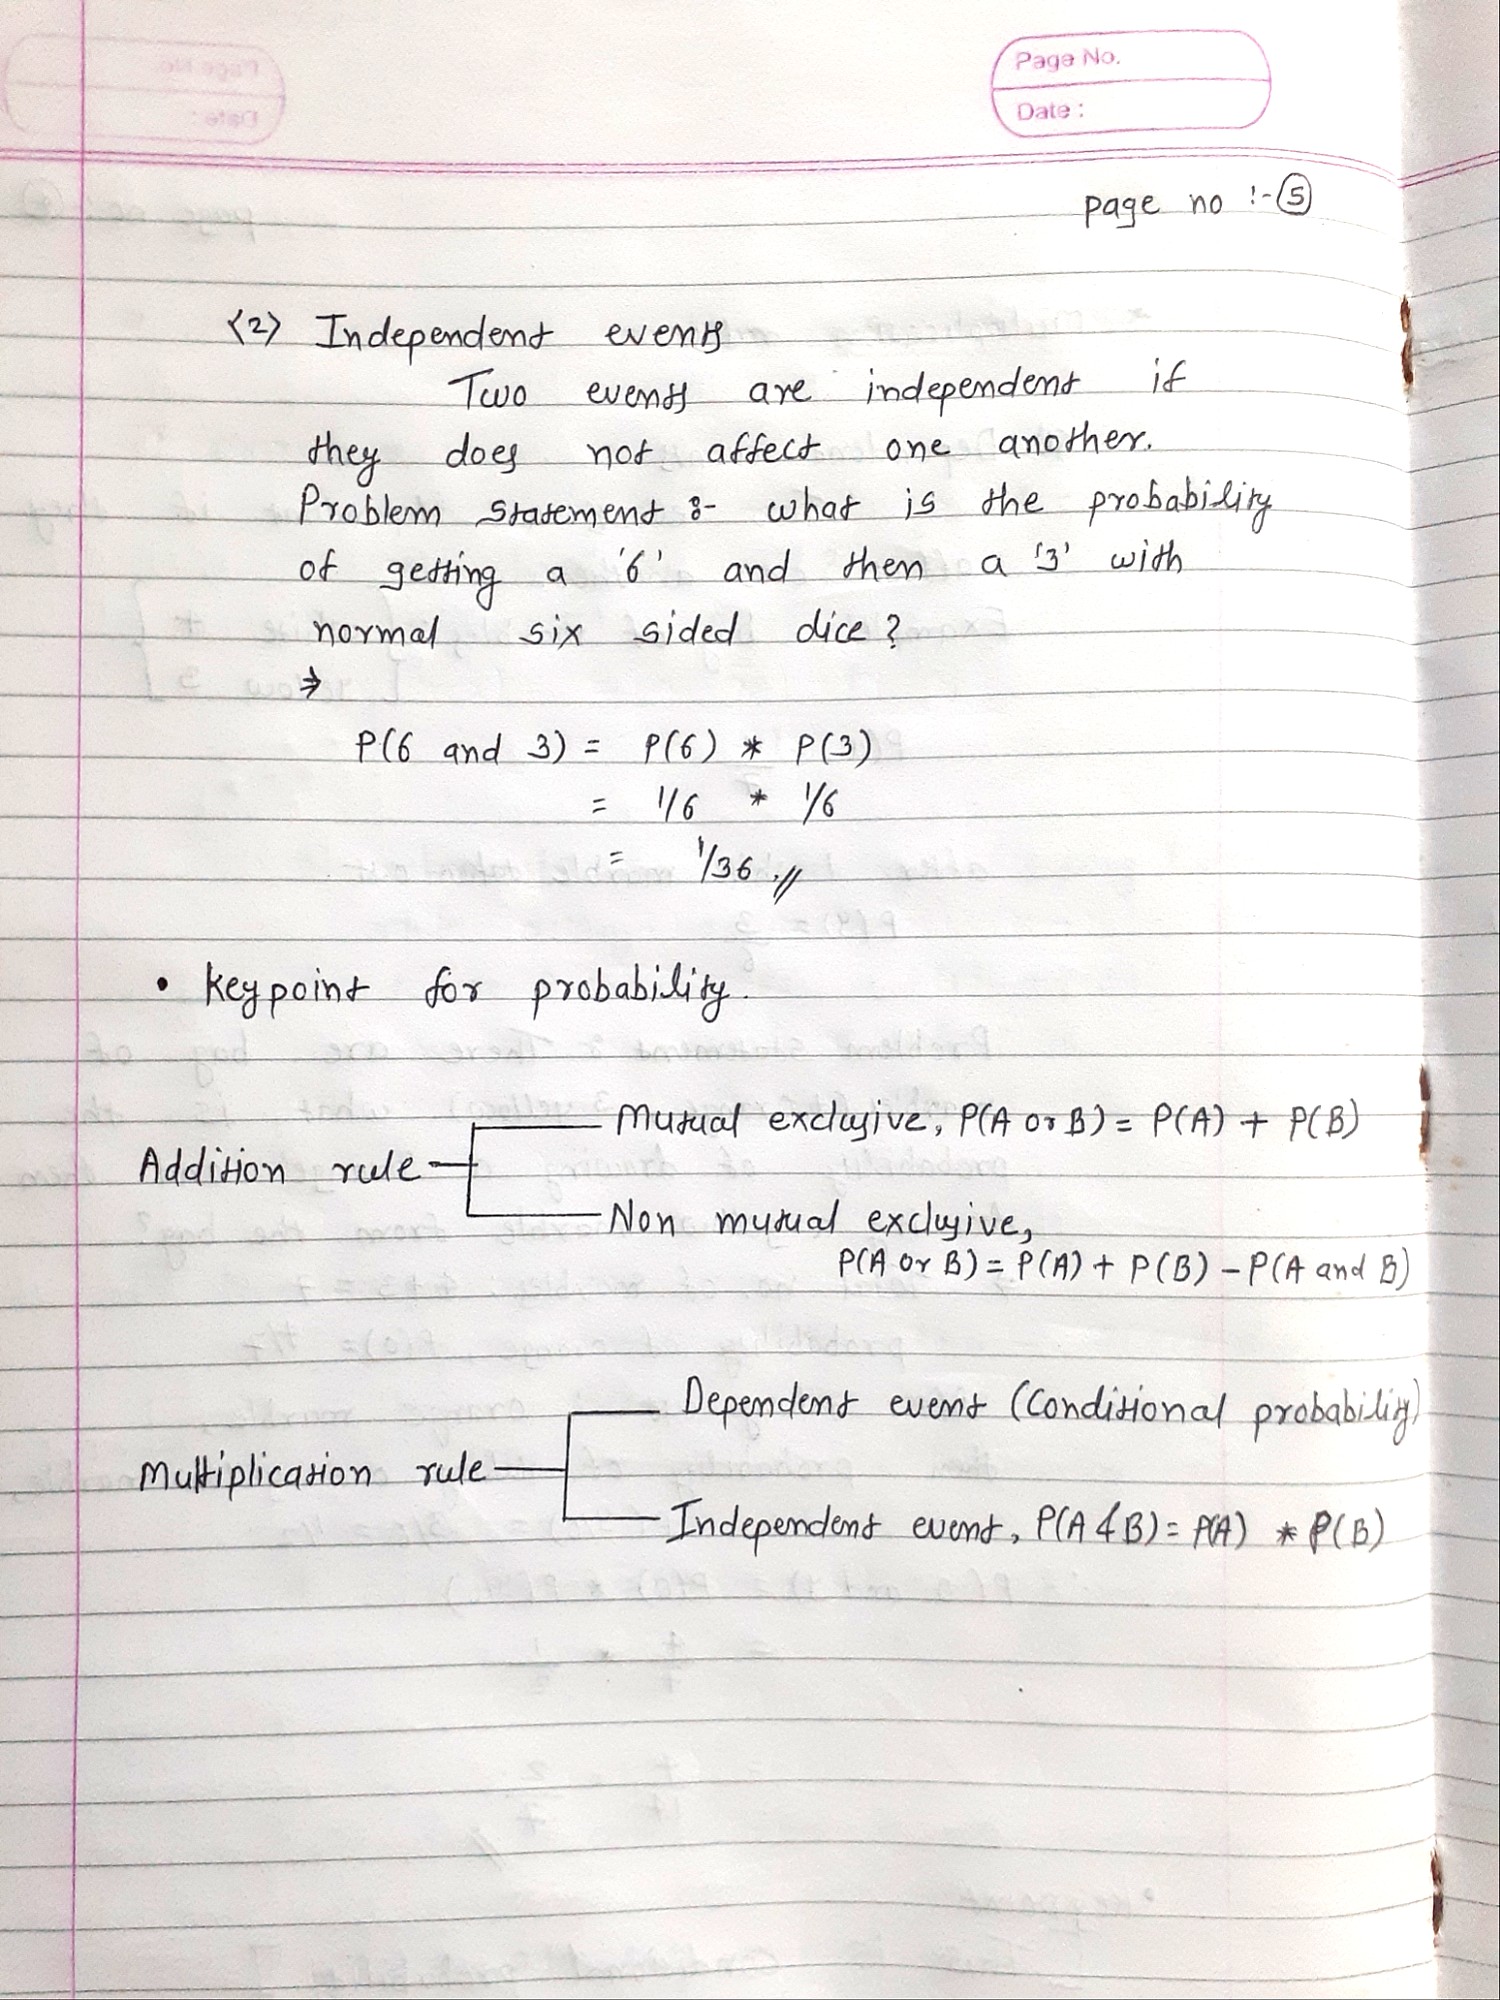 Page No.
Date :
page no :- 5
<2> Independent events
Two events are independent if
they does not affect one another.
Problem statement :- what is the probability
of getting a '6' and then a '3' with
normal six sided dice?
⇒
P(6 and 3) = P(6) * P(3)
= 1/6 * 1/6
= 1/36 .//
• keypoint for probability.
Mutual exclusive, P(A or B) = P(A) + P(B)
Addition rule
Non mutual exclusive,
P(A or B) = P(A) + P(B) - P(A and B)
Dependent event (Conditional probability)
Multiplication rule
Independent event, P(A & B) = P(A) * P(B)